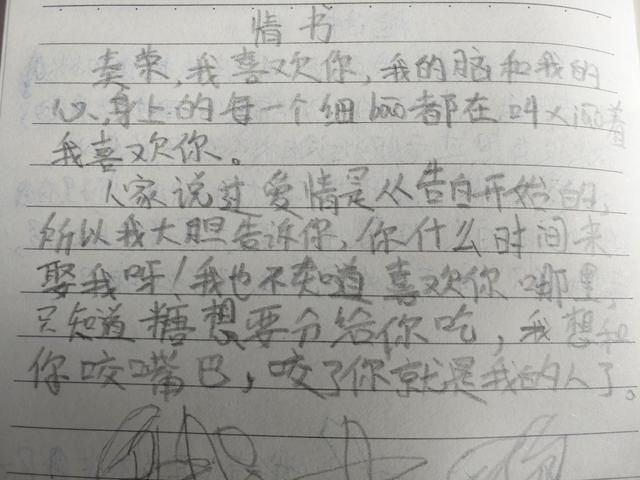 情书
荣,我喜欢你,我的脑和我的
心,身上的每一个细bao都在叫xiao着
我喜欢你。
人家说过爱情是从告白开始的,
所以我大胆告诉你,你什么时间来
娶我呀!我也不知道喜欢你哪里,
只知道糖想要分给你吃,我想和
你咬嘴巴,咬了你就是我的人了。